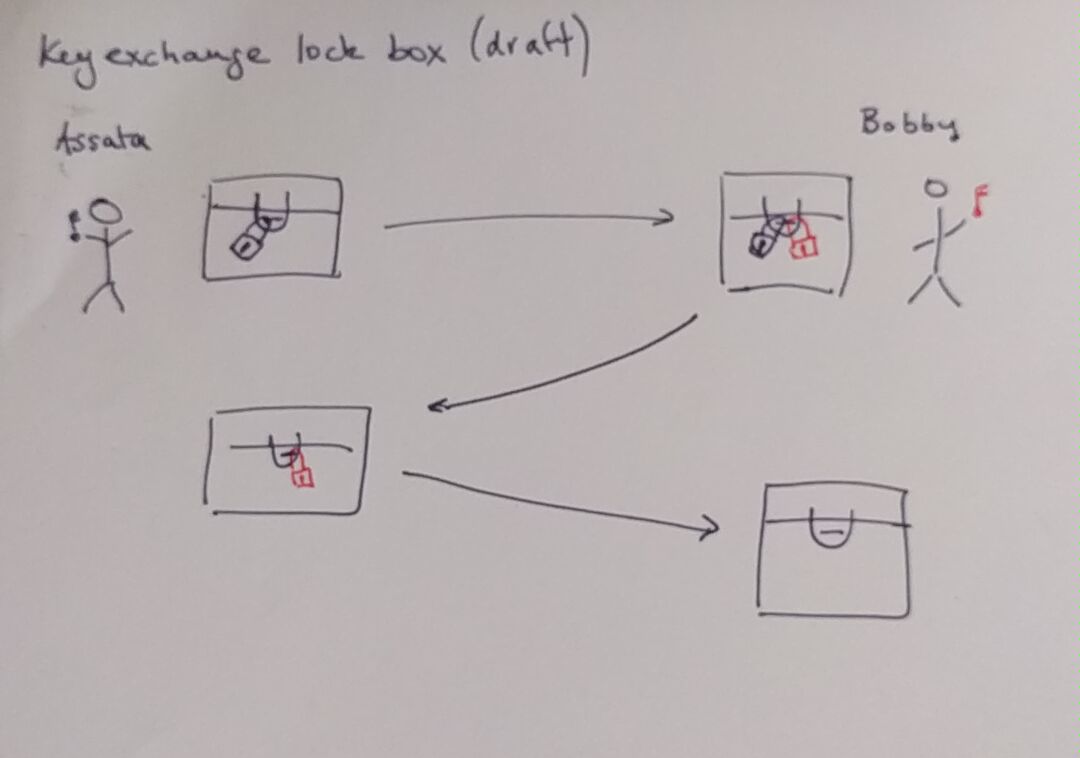 Key exchange lock box (draft)
Assata
Bobby